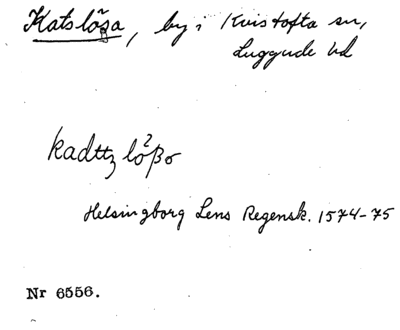 Katslösa, by i Kvistofta sn,
Luggude hd
kadttz lößo
Helsingborg Lens Regensk. 1574-75
Nr 6556.